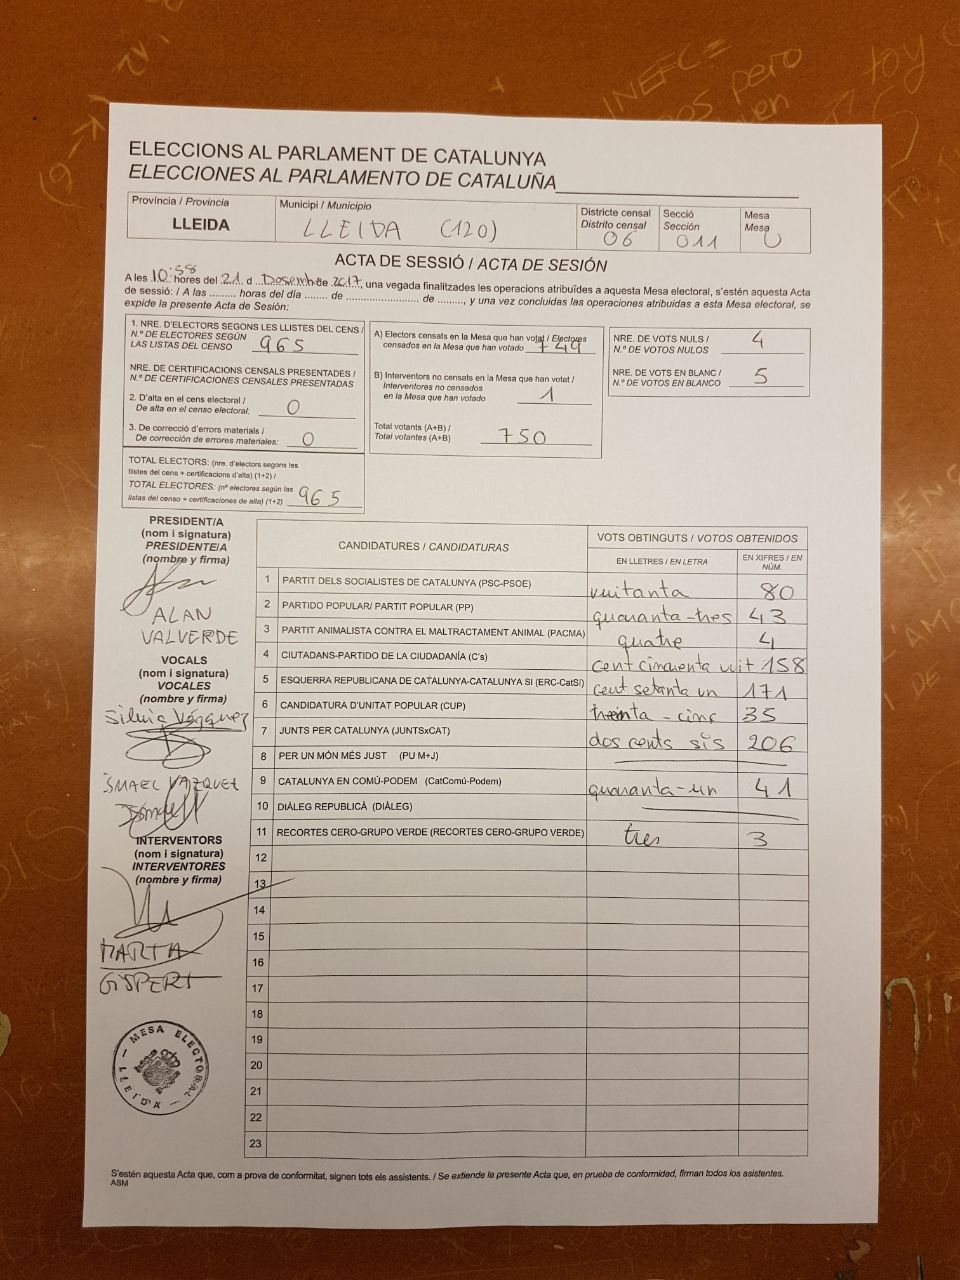 INEFC =
toy
pero
ELECCIONS AL PARLAMENT DE CATALUNYA
ELECCIONES AL PARLAMENTO DE CATALUÑA
Província / Provincia
LLEIDA
Municipi / Municipio
LLEIDA (120)
Districte censal
Distrito censal
06
Secció
Sección
011
Mesa
Mesa
U
ACTA DE SESSIÓ / ACTA DE SESIÓN
A les 10:58 hores del 21 d Desembre de 2017, una vegada finalitzades les operacions atribuïdes a aquesta Mesa electoral, s'estén aquesta Acta
de sessió: / A las ......... horas del día ....... de ......................... de ........, y una vez concluidas las operaciones atribuidas a esta Mesa electoral, se
expide la presente Acta de Sesión:
1. NRE. D'ELECTORS SEGONS LES LLISTES DEL CENS /
N.º DE ELECTORES SEGÚN
LAS LISTAS DEL CENSO 965
NRE. DE CERTIFICACIONS CENSALS PRESENTADES /
N.º DE CERTIFICACIONES CENSALES PRESENTADAS
2. D'alta en el cens electoral /
De alta en el censo electoral: 0
3. De correcció d'errors materials /
De corrección de errores materiales: 0
TOTAL ELECTORS: (nre. d'electors segons les
llistes del cens + certificacions d'alta) (1+2) /
TOTAL ELECTORES: (nº electores según las
listas del censo + certificaciones de alta) (1+2) 965
A) Electors censats en la Mesa que han votat / Electores
censados en la Mesa que han votado 749
B) Interventors no censats en la Mesa que han votat /
Interventores no censados
en la Mesa que han votado 1
Total votants (A+B) /
Total votantes (A+B) 750
NRE. DE VOTS NULS /
N.º DE VOTOS NULOS 4
NRE. DE VOTS EN BLANC /
N.º DE VOTOS EN BLANCO 5
PRESIDENT/A
(nom i signatura)
PRESIDENTE/A
(nombre y firma)
ALAN
VALVERDE
VOCALS
(nom i signatura)
VOCALES
(nombre y firma)
Silvia Vázquez
ISMAEL VAZQUEZ
INTERVENTORS
(nom i signatura)
INTERVENTORES
(nombre y firma)
MARTA
GISPERT
MESA ELECTORAL
LLEIDA
CANDIDATURES / CANDIDATURAS
VOTS OBTINGUTS / VOTOS OBTENIDOS
EN LLETRES / EN LETRA
EN XIFRES / EN
NÚM.
1 PARTIT DELS SOCIALISTES DE CATALUNYA (PSC-PSOE) vuitanta 80
2 PARTIDO POPULAR/ PARTIT POPULAR (PP) quaranta-tres 43
3 PARTIT ANIMALISTA CONTRA EL MALTRACTAMENT ANIMAL (PACMA) quatre 4
4 CIUTADANS-PARTIDO DE LA CIUDADANÍA (C's) cent cinquenta vuit 158
5 ESQUERRA REPUBLICANA DE CATALUNYA-CATALUNYA SÍ (ERC-CatSí) cent setanta un 171
6 CANDIDATURA D'UNITAT POPULAR (CUP) trenta-cinc 35
7 JUNTS PER CATALUNYA (JUNTSxCAT) dos cents sis 206
8 PER UN MÓN MÉS JUST (PU M+J)
9 CATALUNYA EN COMÚ-PODEM (CatComú-Podem) quaranta-un 41
10 DIÀLEG REPUBLICÀ (DIÀLEG)
11 RECORTES CERO-GRUPO VERDE (RECORTES CERO-GRUPO VERDE) tres 3
12
13
14
15
16
17
18
19
20
21
22
23
S'estén aquesta Acta que, com a prova de conformitat, signen tots els assistents. / Se extiende la presente Acta que, en prueba de conformidad, firman todos los asistentes.
ASM